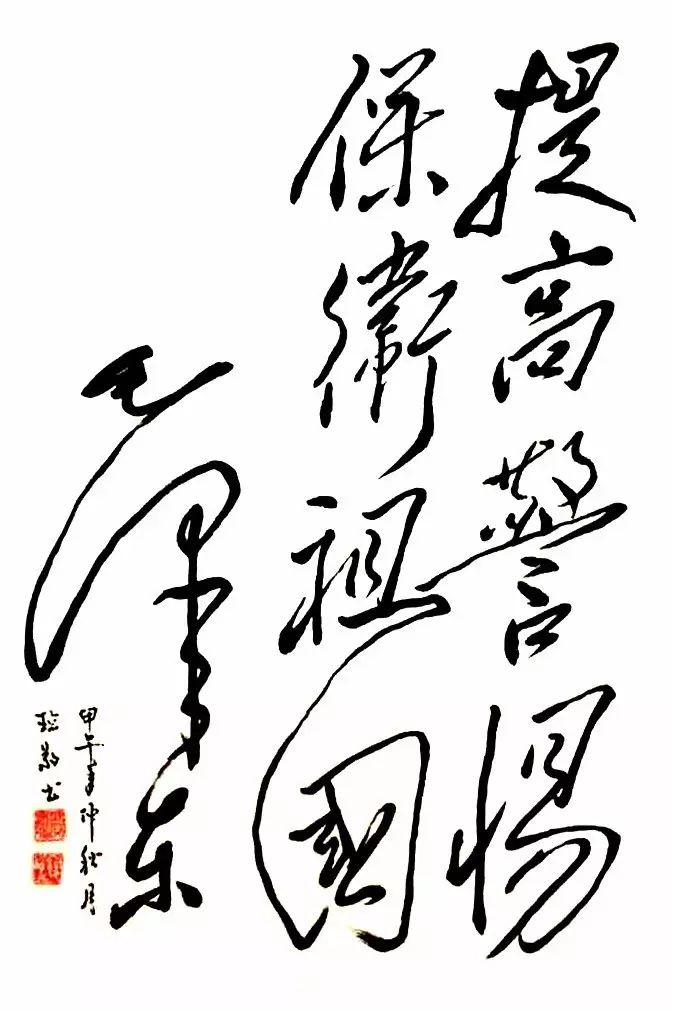 提高警惕
保衛祖國
毛澤东
甲午年仲秋月
敬书